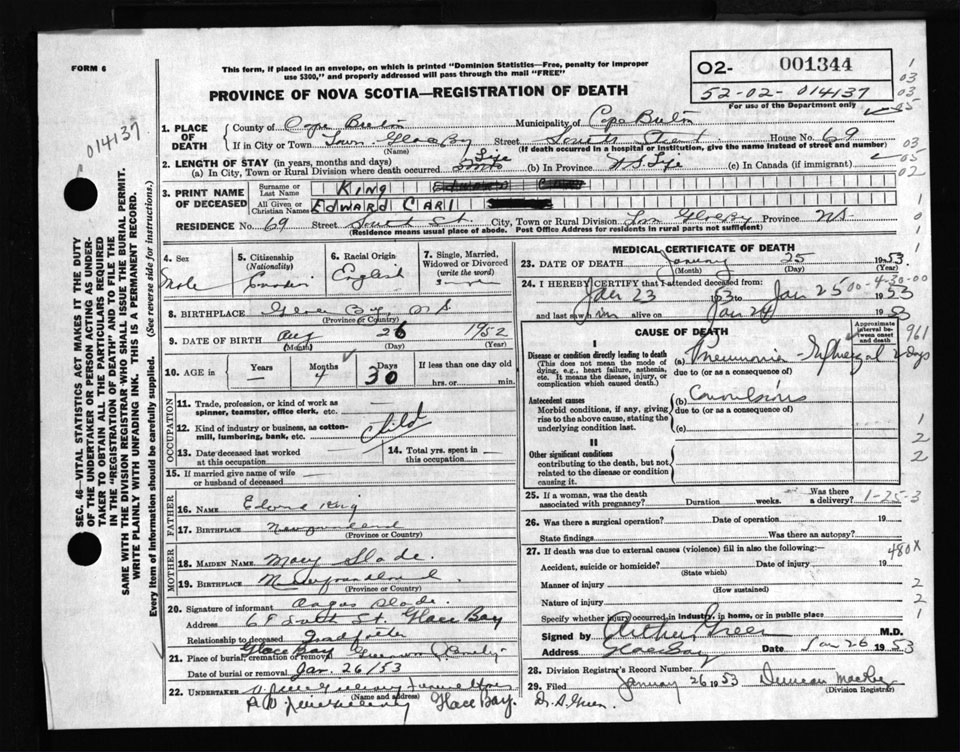 FORM 6
This form, if placed in an envelope, on which is printed "Dominion Statistics—Free, penalty for improper
use $300," and properly addressed will pass through the mail "FREE"
PROVINCE OF NOVA SCOTIA—REGISTRATION OF DEATH
02- 001344
52-02-014137
For use of the Department only
014137
SEC. 46—VITAL STATISTICS ACT MAKES IT THE DUTY
OF THE UNDERTAKER OR PERSON ACTING AS UNDER-
TAKER TO OBTAIN ALL THE PARTICULARS REQUIRED
IN THE "REGISTRATION OF DEATH" AND TO FILE THE
SAME WITH THE DIVISION REGISTRAR WHO SHALL ISSUE THE BURIAL PERMIT.
WRITE PLAINLY WITH UNFADING INK. THIS IS A PERMANENT RECORD.
Every item of information should be carefully supplied. (See reverse side for instructions.)
1. PLACE OF DEATH
County of Cape Breton Municipality of Cape Breton
If in City or Town Town Glace Bay Street South Street House No. 69
(Name) (If death occurred in a hospital or institution, give the name instead of street and number)
2. LENGTH OF STAY (in years, months and days)
(a) In City, Town or Rural Division where death occurred Life (b) In Province Life (c) In Canada (if immigrant)
3. PRINT NAME OF DECEASED
Surname or Last Name KING
All Given or Christian Names EDWARD CARL
RESIDENCE No. 69 Street South St. City, Town or Rural Division Glace Bay Province NS
(Residence means usual place of abode. Post Office Address for residents in rural parts not sufficient)
4. Sex Male
5. Citizenship (Nationality) Canadian
6. Racial Origin English
7. Single, Married, Widowed or Divorced (write the word) Single
8. BIRTHPLACE Glace Bay N.S.
(Province or Country)
9. DATE OF BIRTH Aug 26 1952
(Month) (Day) (Year)
10. AGE in Years — Months 4 Days 30 If less than one day old hrs. or min.
OCCUPATION
11. Trade, profession, or kind of work as spinner, teamster, office clerk, etc.
12. Kind of industry or business, as cotton-mill, lumbering, bank, etc. Child
13. Date deceased last worked at this occupation
14. Total yrs. spent in this occupation
15. If married give name of wife or husband of deceased
FATHER
16. NAME King
17. BIRTHPLACE Newfoundland
(Province or Country)
MOTHER
18. MAIDEN NAME Mary Slade
19. BIRTHPLACE Newfoundland
(Province or Country)
20. Signature of informant Angus Slade
Address South St. Glace Bay
Relationship to deceased Grandfather
21. Place of burial, cremation or removal Glace Bay Greenwood
Date of burial or removal Jan. 26/53
22. UNDERTAKER
(Name and address) Glace Bay.
MEDICAL CERTIFICATE OF DEATH
23. DATE OF DEATH January 25 1953.
(Month) (Day) (Year)
24. I HEREBY CERTIFY that I attended deceased from
Jan 23 1953 to Jan 25 1953
00-4-30-00
and last saw him alive on Jan 24 1953
CAUSE OF DEATH
Approximate interval between onset and death
961
I
Disease or condition directly leading to death
(This does not mean the mode of dying, e.g., heart failure, asthenia, etc. It means the disease, injury, or complication which caused death.)
(a) Pneumonia - Influenzal 2 days
due to (or as a consequence of)
Antecedent causes
Morbid conditions, if any, giving rise to the above cause, stating the underlying condition last.
(b) Convulsions
due to (or as a consequence of)
(c)
II
Other significant conditions
contributing to the death, but not related to the disease or condition causing it.
25. If a woman, was the death associated with pregnancy? Duration weeks. Was there a delivery?
1-25-3
26. Was there a surgical operation? Date of operation 19
State findings Was there an autopsy?
27. If death was due to external causes (violence) fill in also the following:—
480X
Accident, suicide or homicide? Date of injury 19
(State which)
Manner of injury
(How sustained)
Nature of injury
Specify whether injury occurred in industry, in home, or in public place
Signed by Arthur Green M.D.
Address Glace Bay Date Jan 26 1953
28. Division Registrar's Record Number
29. Filed January 26 1953 Duncan
(Division Registrar)
Dr. A. Green.